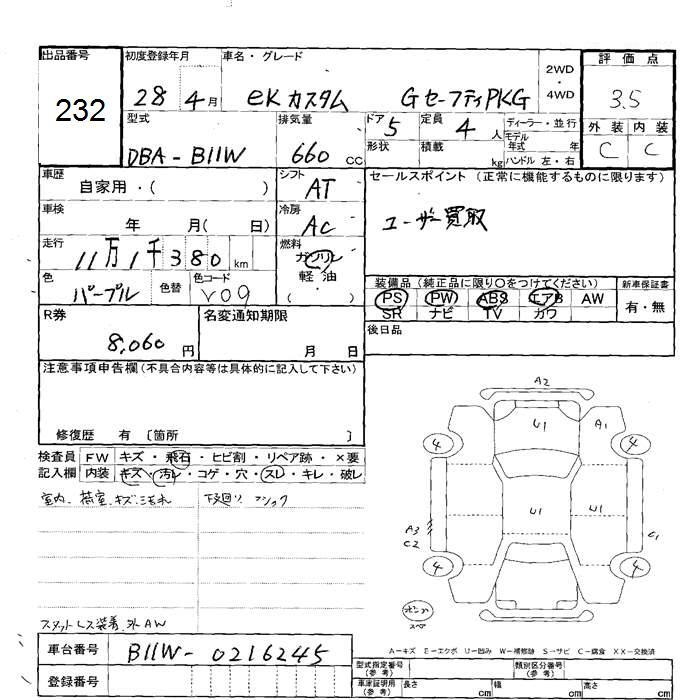 出品番号 初度登録年月 車名・グレード 評価点
232 28 4月 eKカスタム GセーフティPKG 2WD・4WD 3.5
型式 排気量 ドア 定員 ディーラー・並行 外装 内装
DBA-B11W 660 CC 5 4人 モデル年式 年 C C
形状 積載 kg ハンドル 左・右
車歴 シフト セールスポイント (正常に機能するものに限ります)
自家用・( ) AT
車検 冷房 ユーザー買取
年 月( 日) AC
走行 燃料
11万1千380km ガソリン
軽油
( )
色 色替 色コード
パープル V09
装備品 (純正品に限り○をつけてください) 新車保証書
PS PW ABS エアB AW 有・無
SR ナビ TV カワ
R券 名変通知期限 後日品
8,060円 月 日
注意事項申告欄 (不具合内容等は具体的に記入して下さい)
修復歴 有 〔箇所 〕
検査員 FW キズ・飛石・ヒビ割・リペア跡・×要
記入欄 内装 キズ・汚レ・コゲ・穴・スレ・キレ・破レ
室内、荷室、キズ・ヨゴレ 下廻リ
A2
4 U1 A1 4
A3 U1 U1 C1
C2
4 4
スタットレス装着 外AW
A-キズ E-エクボ U-凹み W-補修跡 S-サビ C-腐食 XX-交換済
車台番号 B11W-0216245 型式指定番号 (参考) 類別区分番号 (参考)
登録番号 車庫証明用 (参考) 長さ cm 幅 cm 高さ cm